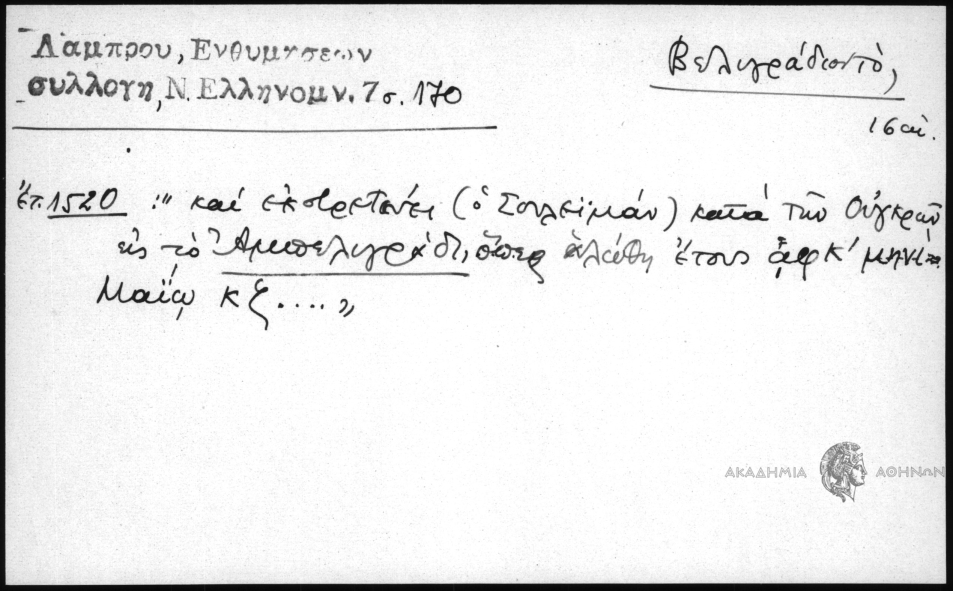 Λαμπρου, Ενθυμησεων
συλλογη, Ν. Ελληνομν. 7 σ. 170
Βελιγράδιον τὸ,
16 αἰ.
ἔτ. 1520 :" καί ἐκστρατεύει (ὁ Σουλεϊμάν) κατά τῶν Οὐγκρῶν
εἰς τὸ Ἀμπελιγράδι, ὅπερ ἁλώθη ἔτους ͵αφκ' μηνὶ
Μαΐῳ κζ .... "
ΑΚΑΔΗΜΙΑ ΑΘΗΝΩΝ